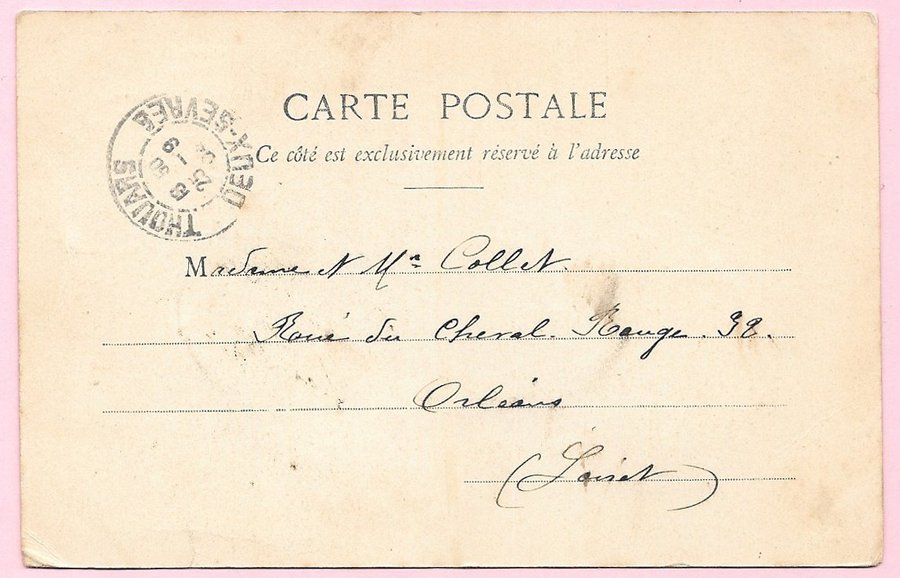 CARTE POSTALE
Ce côté est exclusivement réservé à l'adresse
THOUARS
DEUX-SEVRES
Madame et Mr Collet.
Roue du Cheval. Rouge. 32.
Orléans
(Loiret)